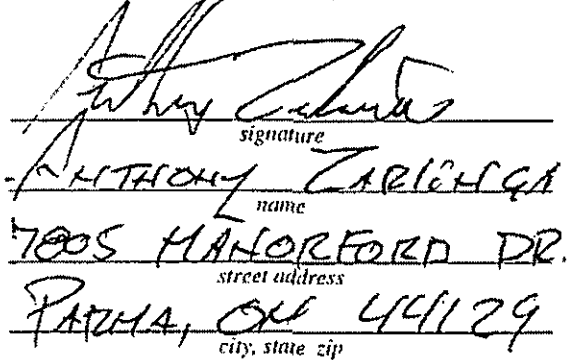 signature
ANTHONY
name
7005 MANORFORD DR.
street address
PARMA, OH 44129
city, state zip